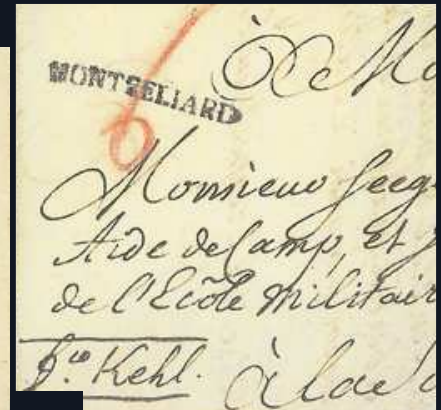 MONTBELIARD
6
à Mo
Monsieur Seeg
Aide de Camp, et
de l'Ecôle Militair
fco Kehl.
à la